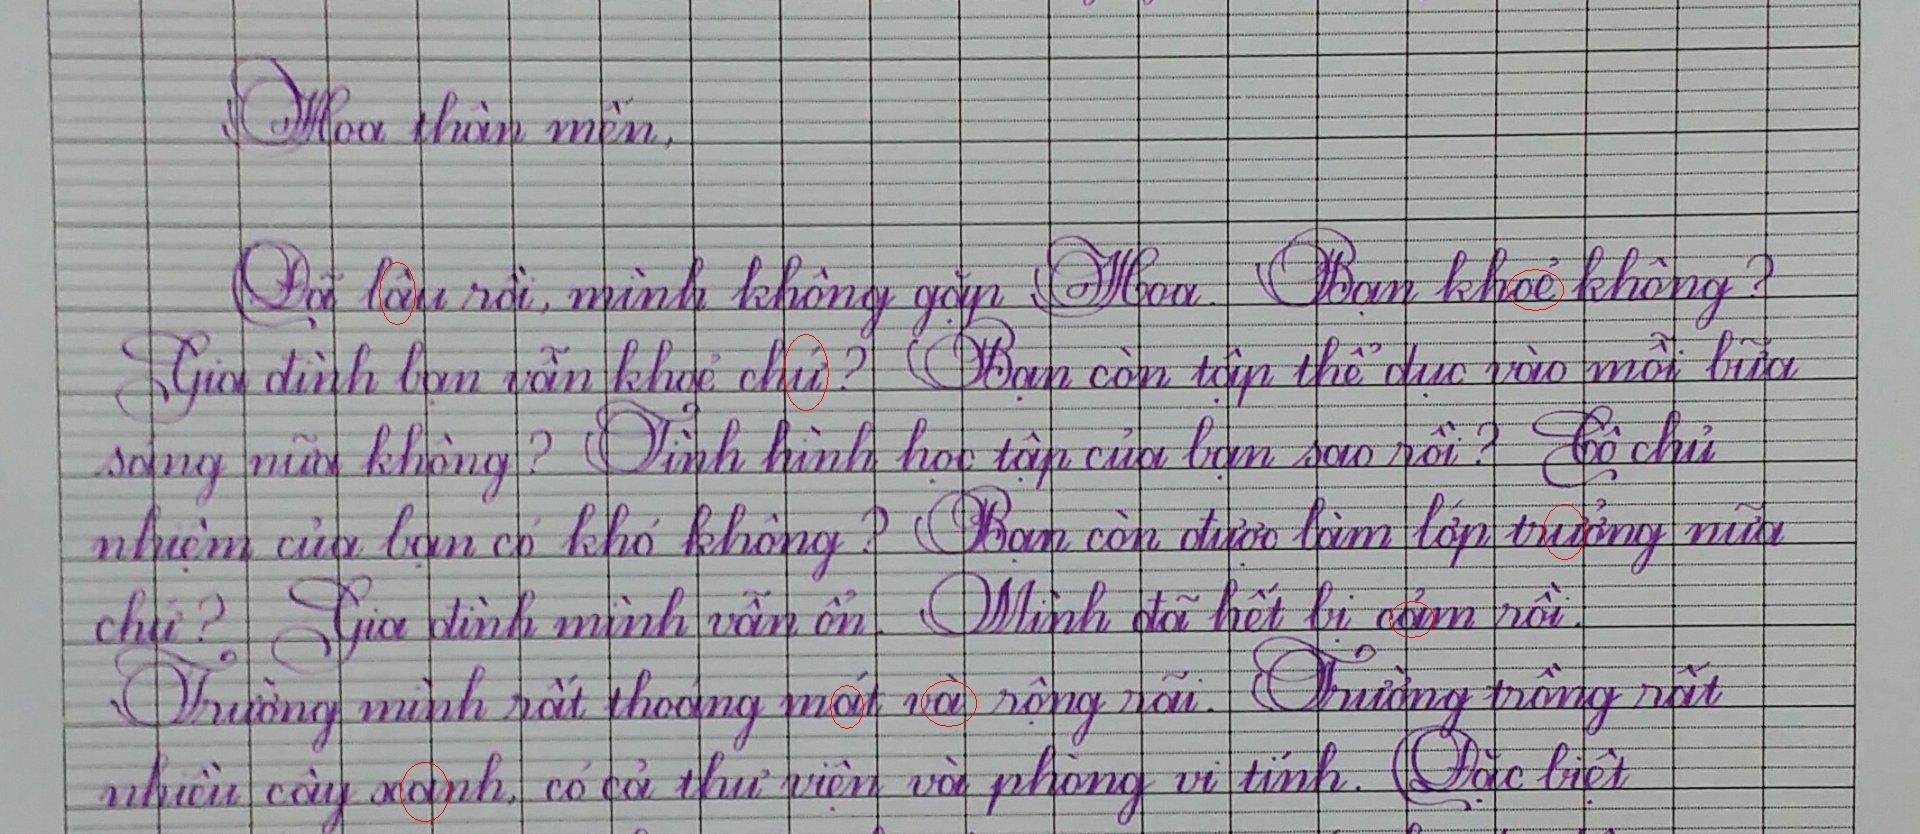 Hoa thân mến,
Đã lâu rồi, mình không gặp Hoa. Bạn khoẻ không?
Gia đình bạn vẫn khoẻ chứ? Bạn còn tập thể dục vào mỗi bữa
sáng nữa không? Tình hình học tập của bạn sao rồi? Cô chủ
nhiệm của bạn có khó không? Bạn còn được làm lớp trưởng nữa
chứ? Gia đình mình vẫn ổn. Mình đã hết bị cảm rồi.
Trường mình rất thoáng mát và rộng rãi. Trường trồng rất
nhiều cây xanh, có cả thư viện và phòng vi tính. Đặc biệt